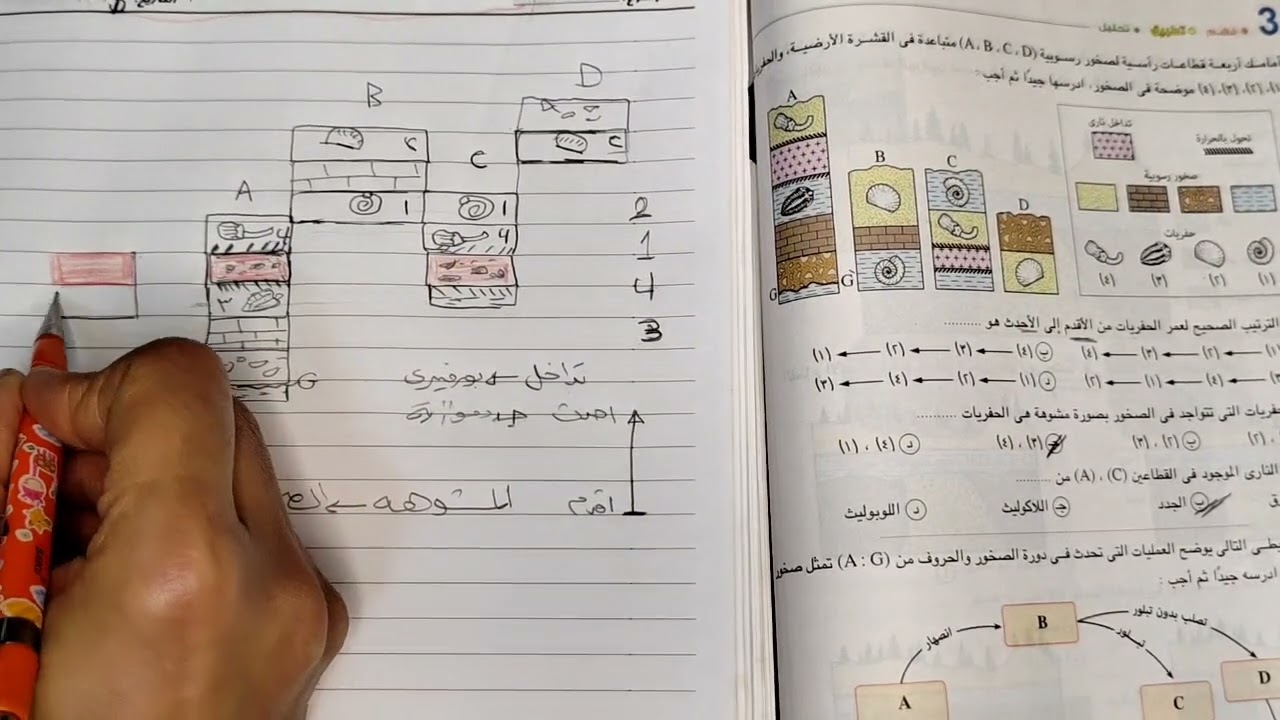 D
B
C
A
C
C
1
1
2
4
4
1
3
4
3
G
تداخل
احدث
اقدم
3
فهم تطبيق تحليل
أمامك أربعة قطاعات رأسية لصخور رسوبية (A ، B ، C ، D) متباعدة فى القشرة الأرضية، والحفريا
(١)، (٢)، (٣)، (٤) موضحة فى الصخور، ادرسها جيدًا ثم أجب :
A
B
C
D
G
G
تداخل نارى
تحول بالحرارة
صخور رسوبية
حفريات
(٤) (٣) (٢) (١)
الترتيب الصحيح لعمر الحفريات من الأقدم إلى الأحدث هو ..........
(٢) ← (٣) ← (٤)
ب (٤) ← (٣) ← (٢) ← (١)
(٤) ← (١) ← (٢)
د (١) ← (٢) ← (٤) ← (٣)
فريات التى تتواجد فى الصخور بصورة مشوهة هى الحفريات ..........
ب (٢) ، (٣)
(٣) ، (٤)
د (٤) ، (١)
النارى الموجود فى القطاعين (C) ، (A) من ..........
ب الجدد
ج اللاكوليث
د اللوبوليث
التالى يوضح العمليات التى تحدث فى دورة الصخور والحروف من (A : G) تمثل صخور
ادرسه جيدًا ثم أجب :
A
انصهار
B
تصلب بدون تبلور
تبلور
C
D